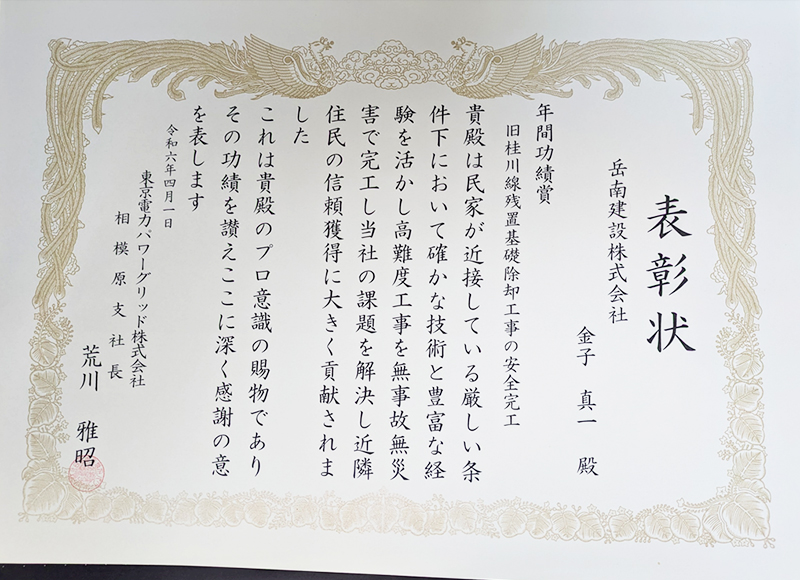 表彰状
岳南建設株式会社
金子 真一 殿
年間功績賞
旧桂川線残置基礎除却工事の安全完工
貴殿は民家が近接している厳しい条
件下において確かな技術と豊富な経
験を活かし高難度工事を無事故無災
害で完工し当社の課題を解決し近隣
住民の信頼獲得に大きく貢献されま
した
これは貴殿のプロ意識の賜物であり
その功績を讃えここに深く感謝の意
を表します
令和六年四月一日
東京電力パワーグリッド株式会社
相模原支社長
荒川 雅昭